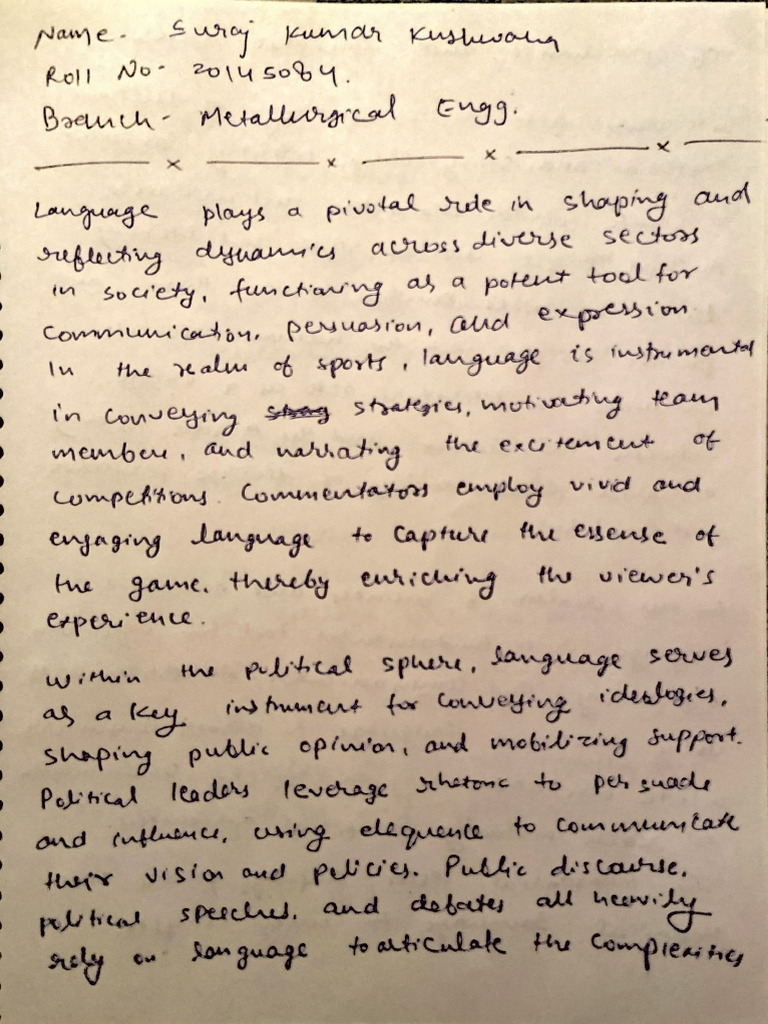 Name- Suraj Kumar Kushwaha
Roll No- 20145084.
Branch- Metallurgical Engg.
Language plays a pivotal role in shaping and
reflecting dynamics across diverse sectors
in society, functioning as a potent tool for
communication, persuasion, and expression
In the realm of sports, language is instrumental
in conveying strategies, motivating team
members, and narrating the excitement of
competitions. Commentators employ vivid and
engaging language to capture the essense of
the game, thereby enriching the viewer's
experience.
Within the political sphere, language serves
as a key instrument for conveying ideologies,
shaping public opinion, and mobilizing support.
Political leaders leverage rhetoric to persuade
and influence, using eloquence to communicate
their vision and policies. Public discourse,
political speeches, and debates all heavily
rely on language to articulate the complexities